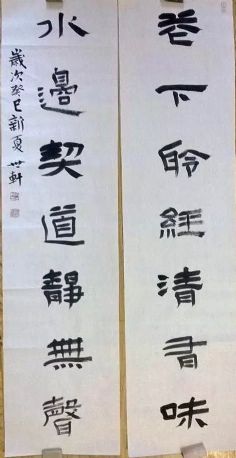 花下聆經清有味
水邊契道靜無聲
歲次癸巳新夏世軒